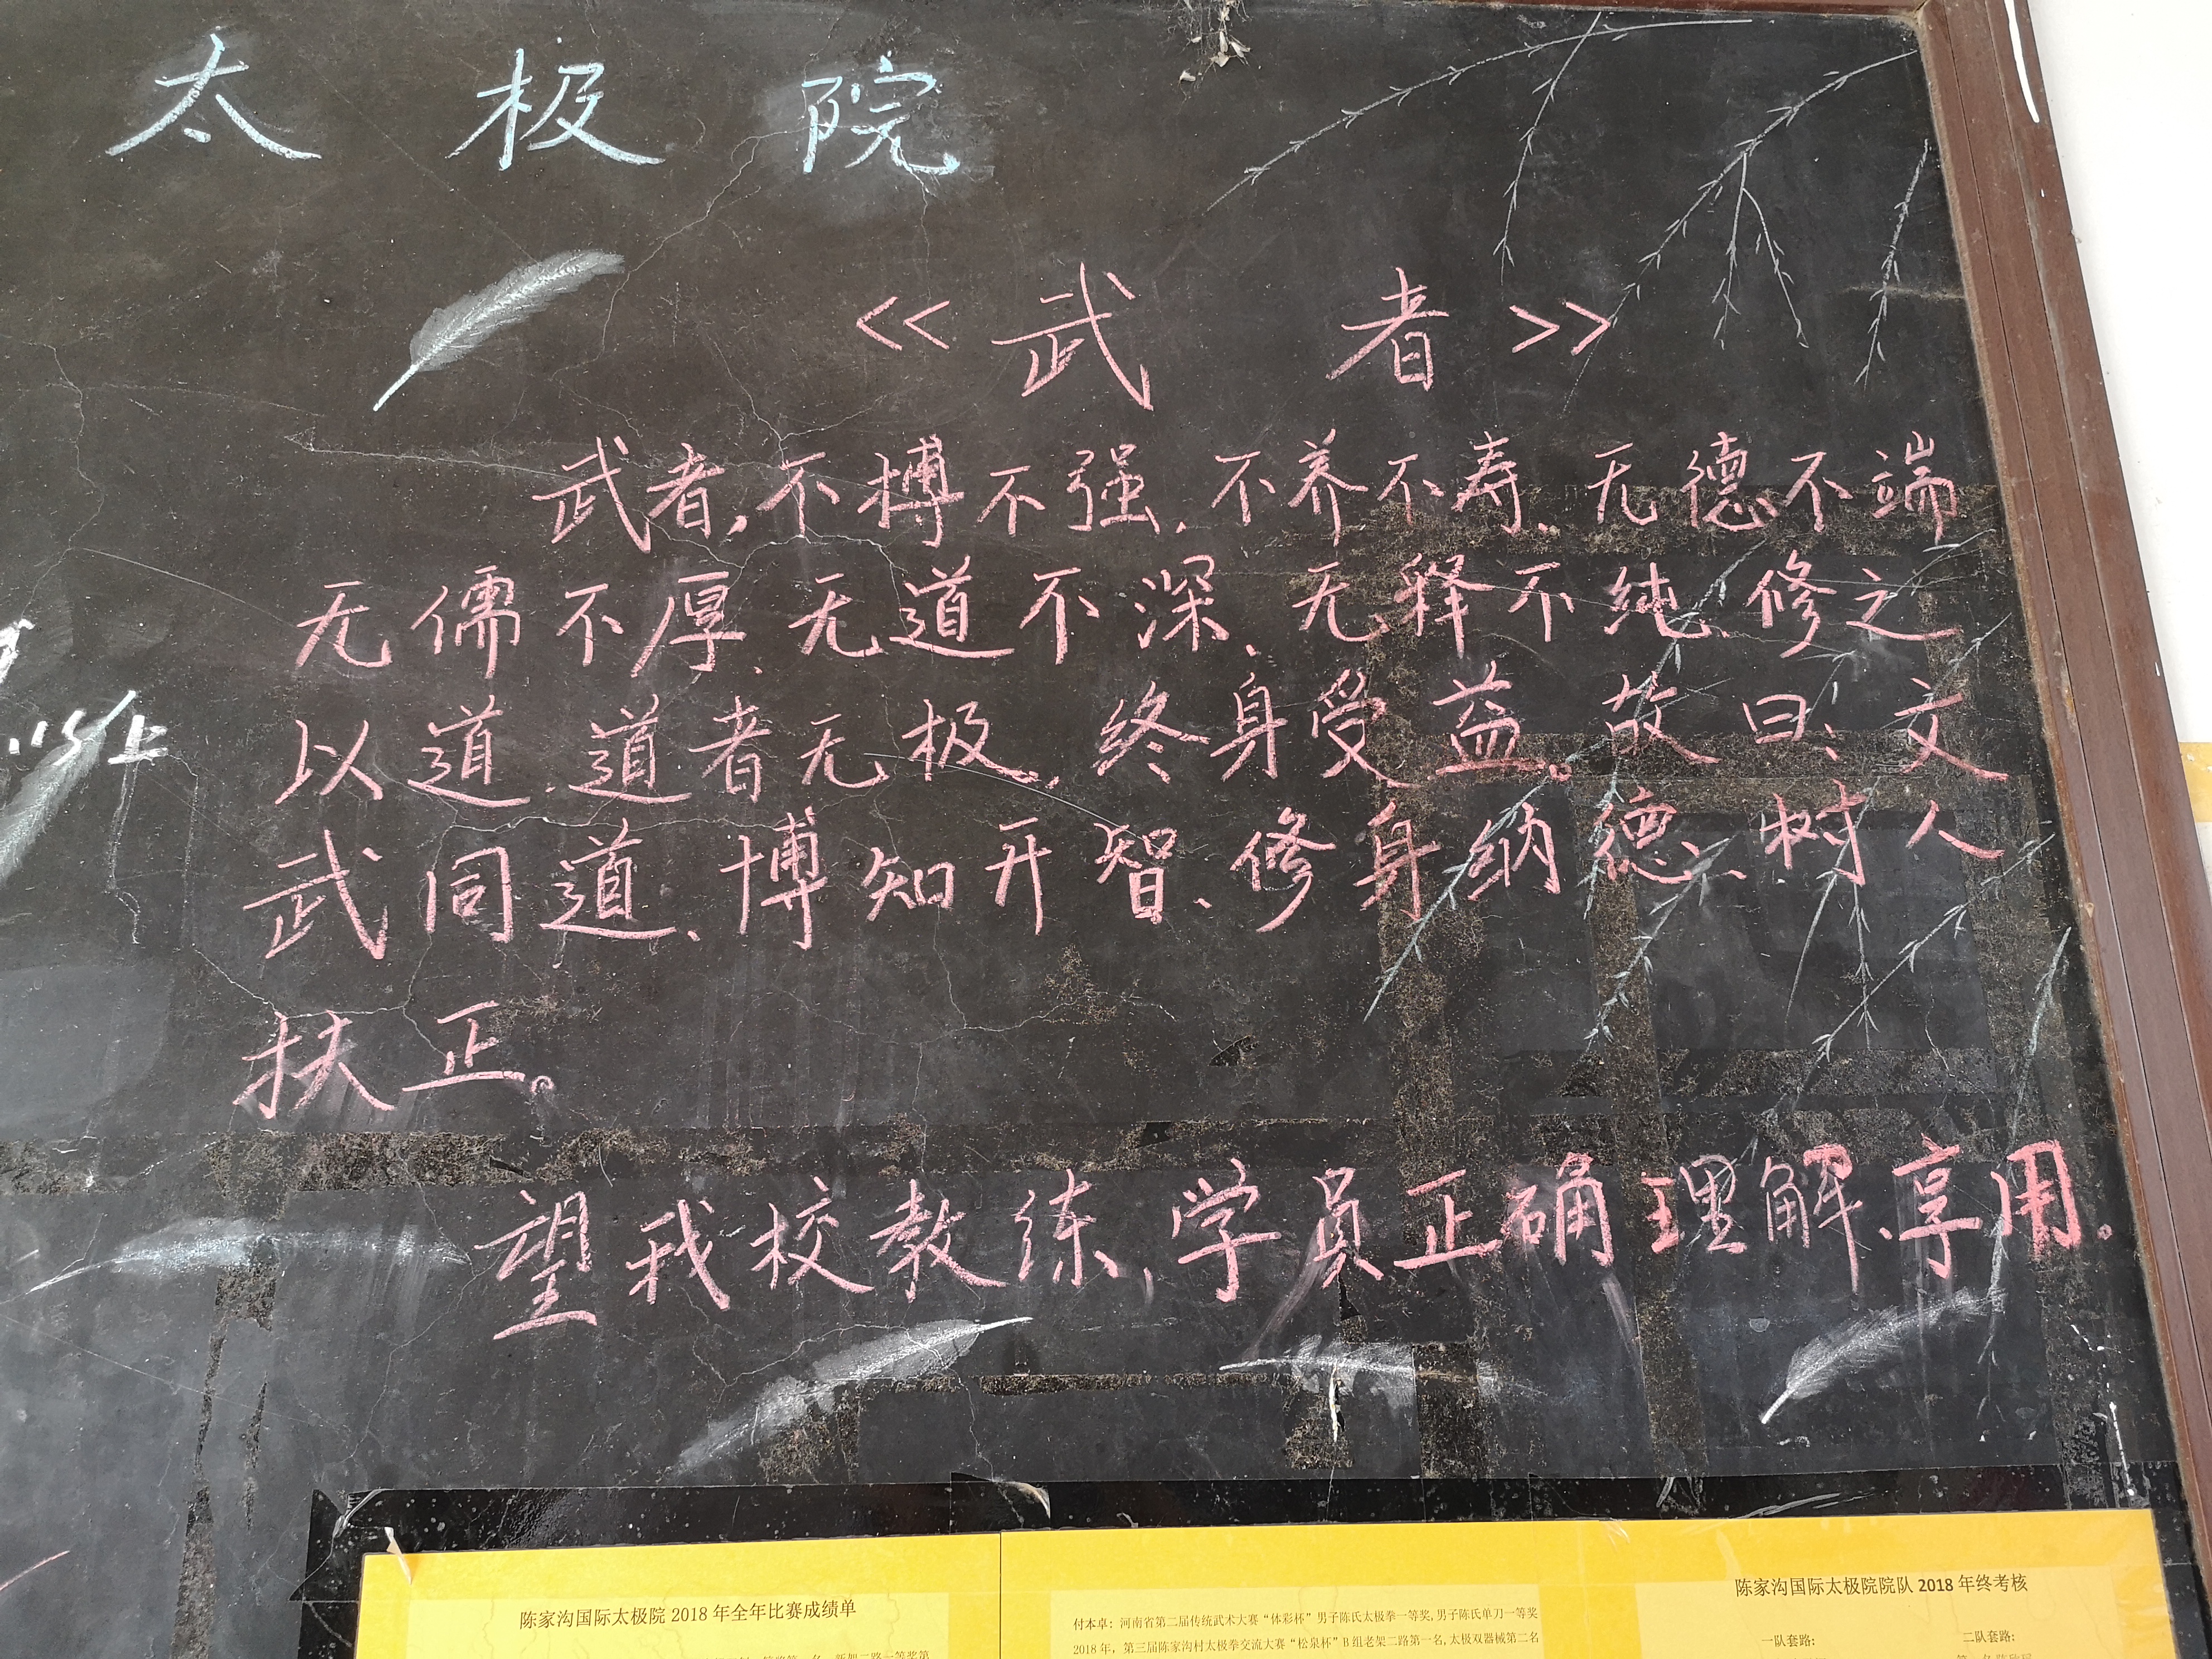 太极院
<<武者>>
武者,不搏不强、不养不寿、无德不端
无儒不厚、无道不深、无释不纯、修之
以道、道者无极、终身受益。故曰:文
武同道、博知开智、修身纳德、树人
扶正。
望我校教练、学员正确理解、享用。
陈家沟国际太极院2018年全年比赛成绩单
付本卓:河南省第二届传统武术大赛“体彩杯”男子陈氏太极拳一等奖,男子陈氏单刀一等奖
2018年,第三届陈家沟村太极拳交流大赛“松泉杯”B组老架二路第一名,太极双器械第二名
陈家沟国际太极院院队2018年终考核
一队套路: 二队套路: